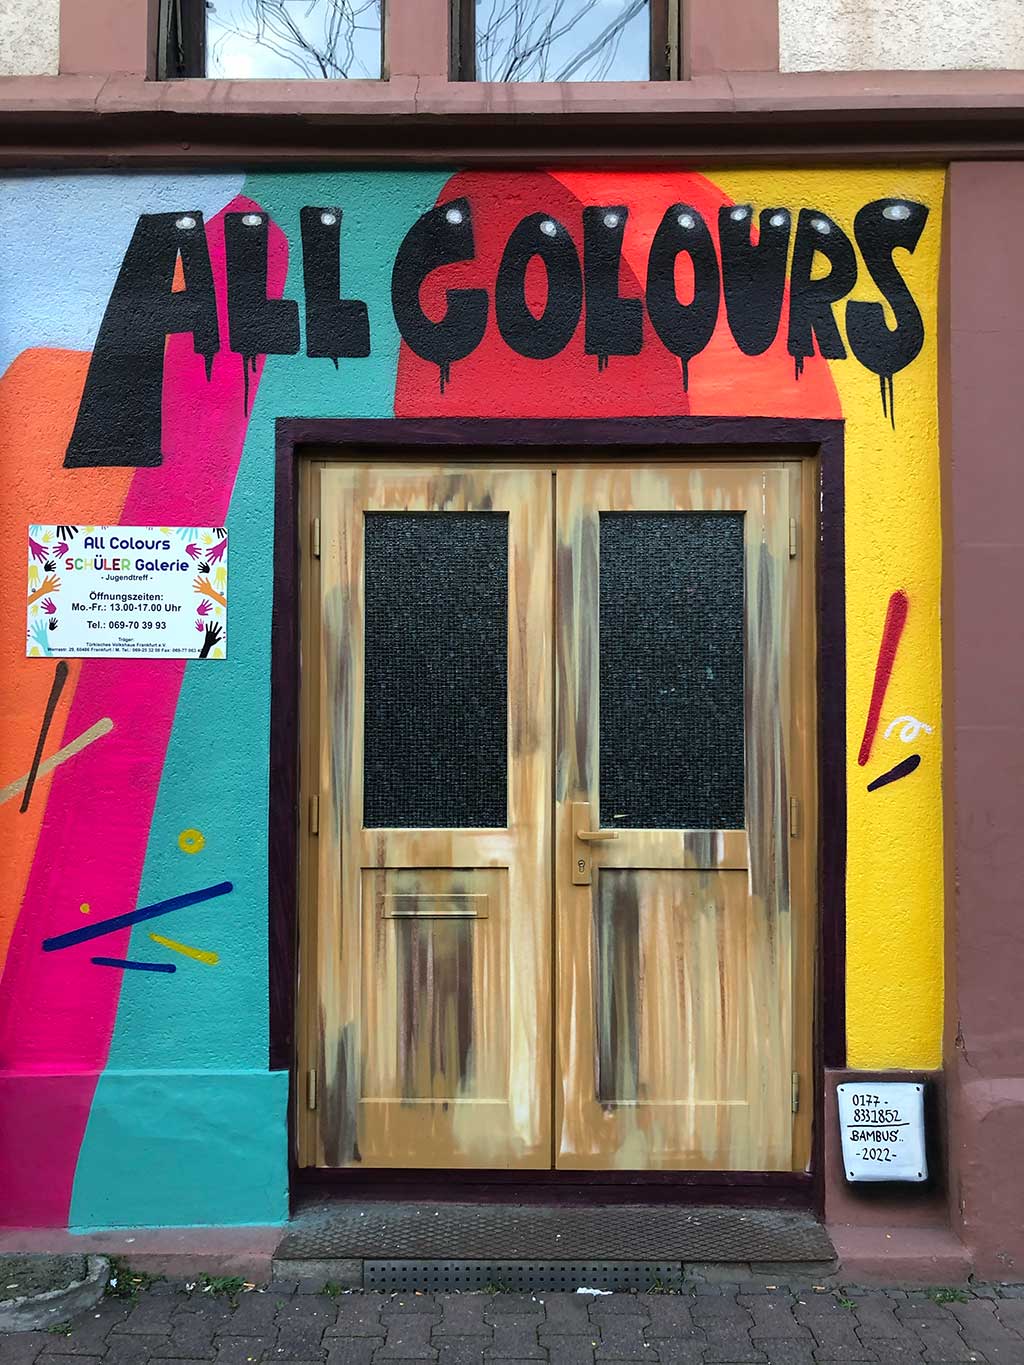 ALL COLOURS
All Colours
SCHÜLER Galerie
- Jugendtreff -
Öffnungszeiten:
Mo.-Fr.: 13.00-17.00 Uhr
Tel.: 069-70 39 93
Träger:
Türkisches Volkshaus Frankfurt e.V.
Werrastr. 29, 60486 Frankfurt / M. Tel.: 069-25 32 08 Fax: 069-77 063
0177-
8331852
BAMBUS..
-2022-